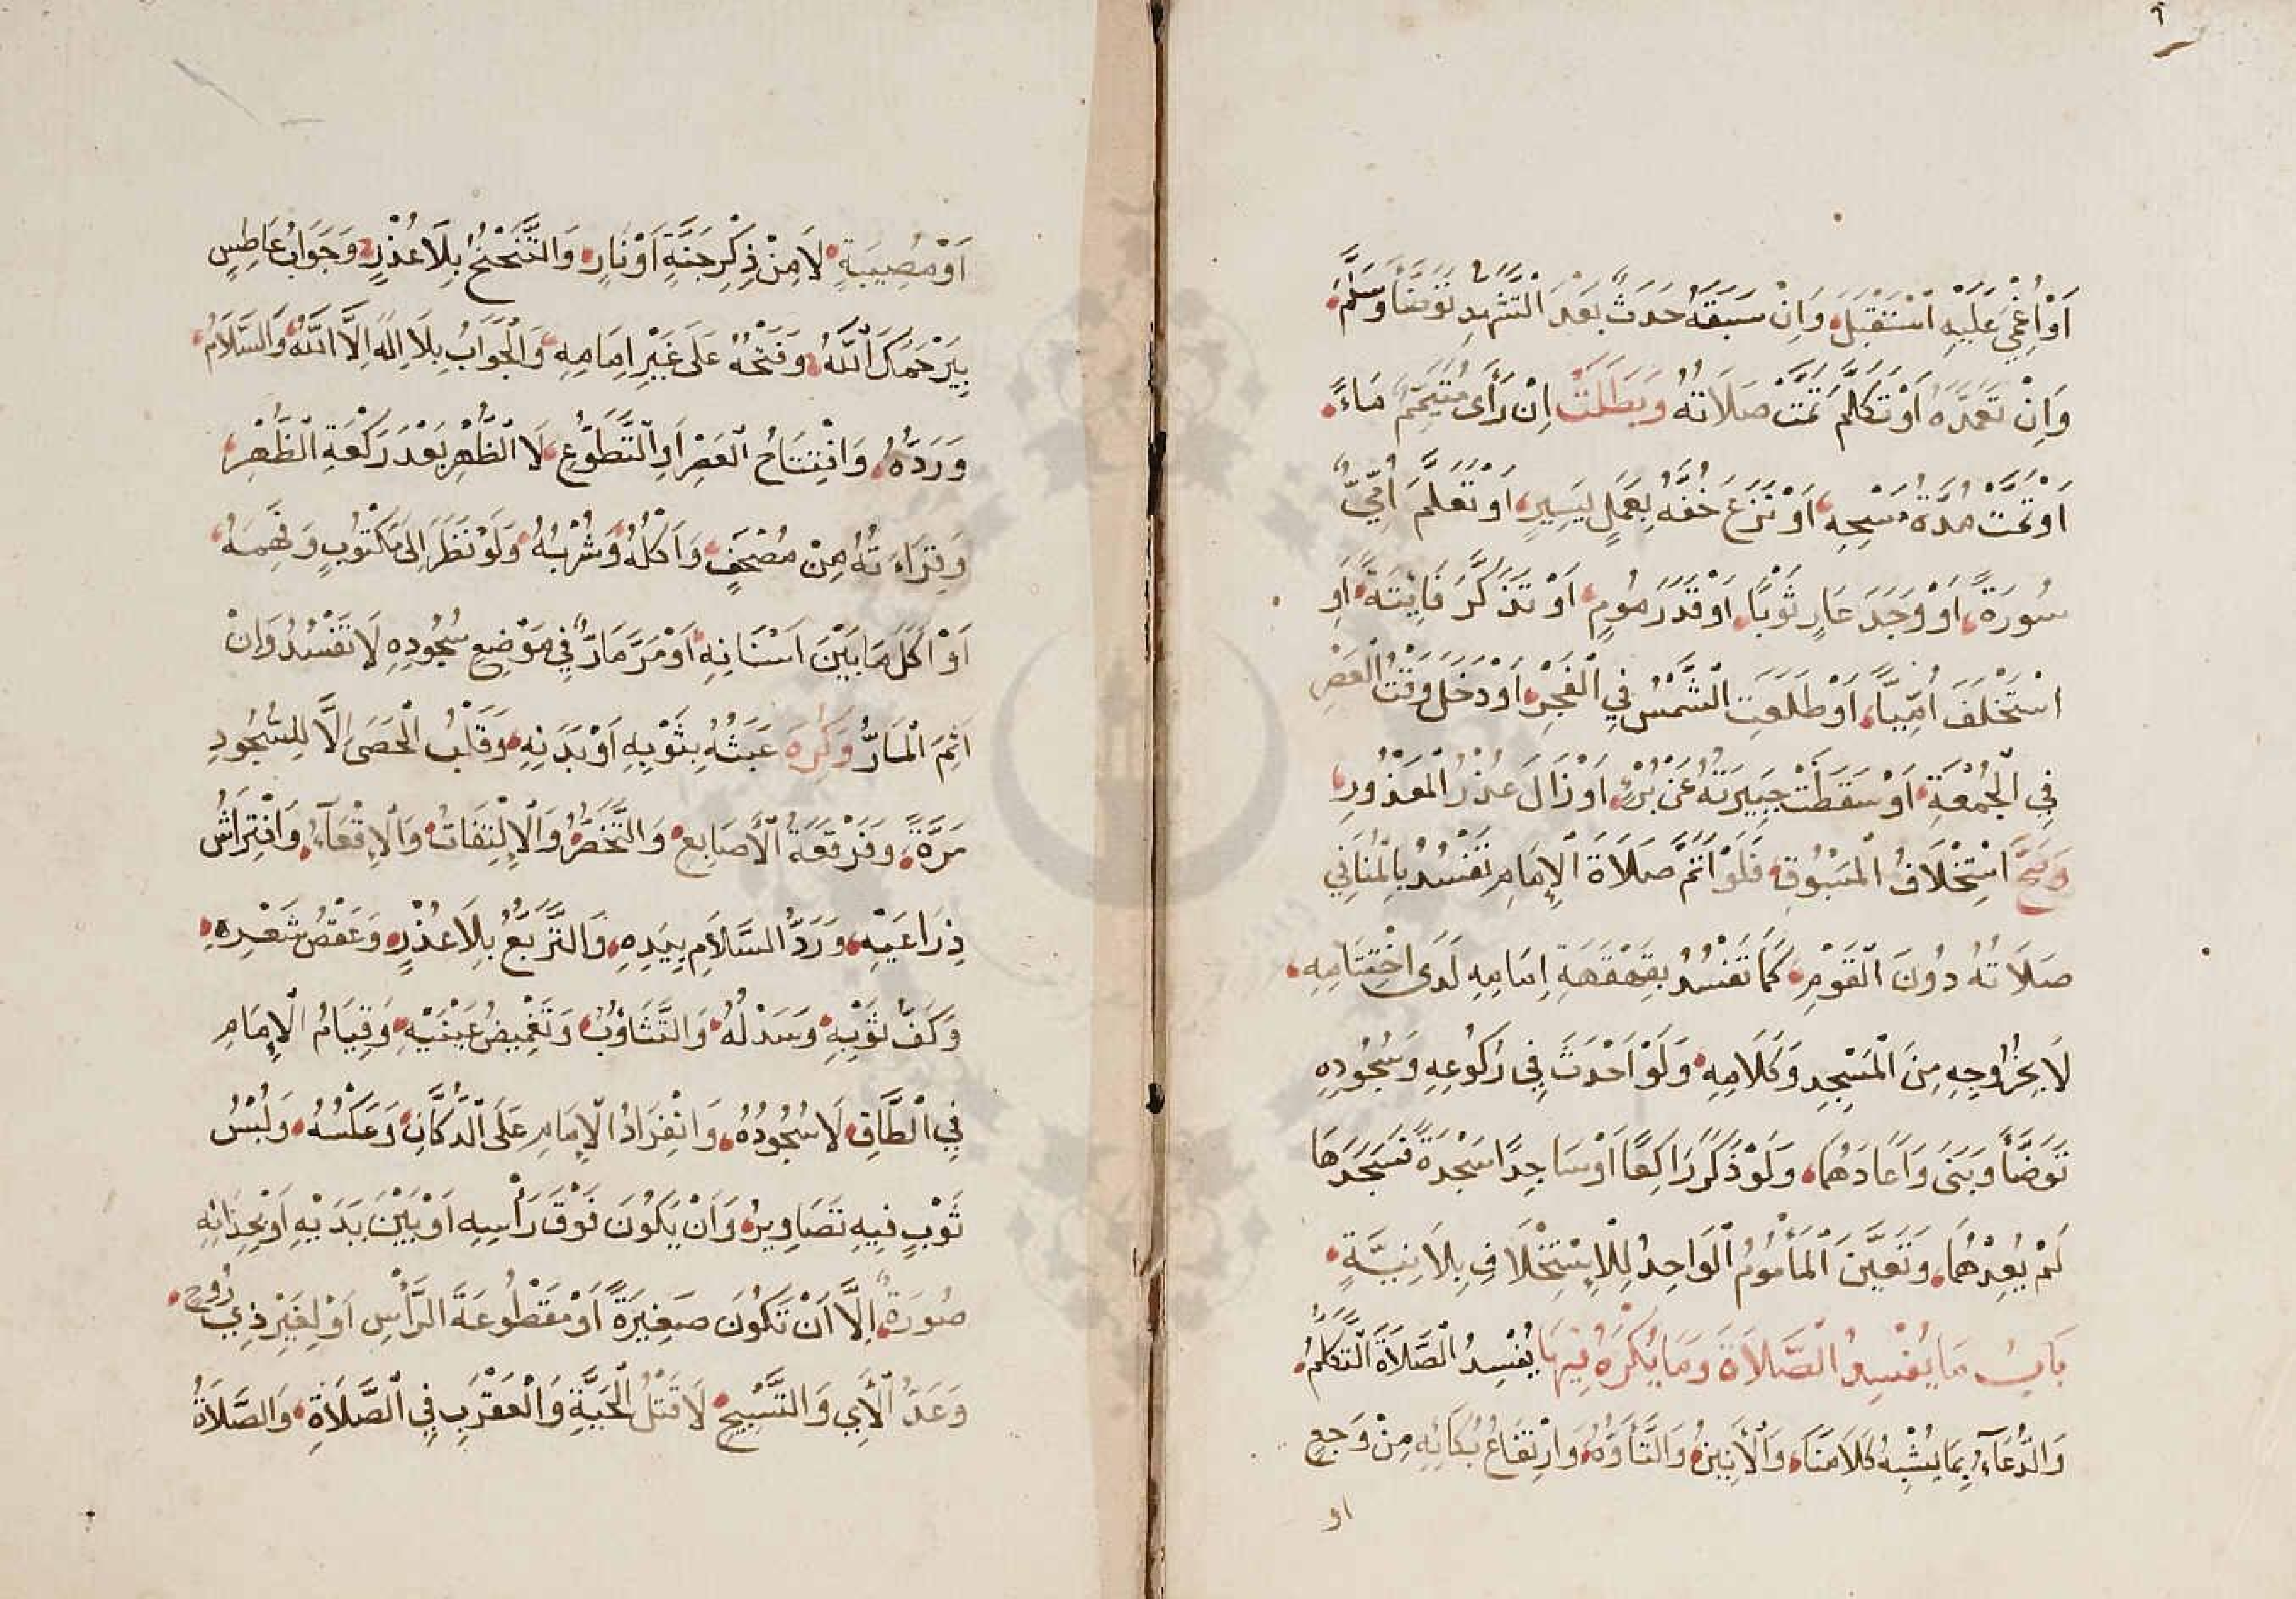 أَوْ أُغْمِيَ عَلَيْهِ اسْتَقْبَلَ وَإِنْ سَبَقَهُ حَدَثٌ بَعْدَ التَّشَهُّدِ تَوَضَّأَ وَسَلَّمَ
وَإِنْ تَعَمَّدَهُ أَوْ تَكَلَّمَ تَمَّتْ صَلَاتُهُ وَبَطَلَتْ إِنْ رَأَى مُتَيَمِّمٌ مَاءً
أَوْ تَمَّتْ مُدَّةُ مَسْحِهِ أَوْ نَزَعَ خُفَّهُ بِعَمَلٍ يَسِيرٍ أَوْ تَعَلَّمَ أُمِّيٌّ
سُورَةً أَوْ وَجَدَ عَارٍ ثَوْبًا أَوْ قَدَرَ مُومٍ أَوْ تَذَكَّرَ فَايِتَةً أَوِ
اسْتَخْلَفَ أُمِّيًّا أَوْ طَلَعَتِ الشَّمْسُ فِي الْفَجْرِ أَوْ دَخَلَ وَقْتُ الْعَصْرِ
فِي الْجُمُعَةِ أَوْ سَقَطَتْ جَبِيرَتُهُ عَنْ بُرْءٍ أَوْ زَالَ عُذْرُ الْمَعْذُورِ
وَصَحَّ اسْتِخْلَافُ الْمَسْبُوقِ فَلَوْ أَتَمَّ صَلَاةَ الْإِمَامِ تَفْسُدُ بِالْمُنَافِي
صَلَاتُهُ دُونَ الْقَوْمِ كَمَا تَفْسُدُ بِقَهْقَهَةِ إِمَامِهِ لَدَى اخْتِتَامِهِ
لَا بِخُرُوجِهِ مِنَ الْمَسْجِدِ وَكَلَامِهِ وَلَوْ أَحْدَثَ فِي رُكُوعِهِ وَسُجُودِهِ
تَوَضَّأَ وَبَنَى وَأَعَادَهُمَا وَلَوْ ذَكَرَ رَاكِعًا أَوْ سَاجِدًا سَجْدَةً فَسَجَدَهَا
لَمْ يُعِدْهُمَا وَتَعَيَّنَ الْمَأْمُومُ الْوَاحِدُ لِلْاِسْتِخْلَافِ بِلَا نِيَّةٍ
بَابُ مَا يُفْسِدُ الصَّلَاةَ وَمَا يُكْرَهُ فِيهَا يُفْسِدُ الصَّلَاةَ التَّكَلُّمُ
وَالدُّعَاءُ بِمَا يُشْبِهُ كَلَامَنَا وَالْأَنِينُ وَالتَّأَوُّهُ وَارْتِفَاعُ بُكَائِهِ مِنْ وَجَعٍ
او
أَوْ مُصِيبَةٍ لَا مِنْ ذِكْرِ جَنَّةٍ أَوْ نَارٍ وَالتَّنَحْنُحُ بِلَا عُذْرٍ وَجَوَابُ عَاطِسٍ
بِيَرْحَمُكَ اللّٰهُ وَفَتْحُهُ عَلَى غَيْرِ إِمَامِهِ وَالْجَوَابُ بِلَا إِلٰهَ إِلَّا اللّٰهُ وَالسَّلَامُ
وَرَدُّهُ وَافْتِتَاحُ الْعَصْرِ أَوِ التَّطَوُّعِ لَا الظُّهْرِ بَعْدَ رَكْعَةِ الظُّهْرِ
وَقِرَاءَتُهُ مِنْ مُصْحَفٍ وَأَكْلُهُ وَشُرْبُهُ وَلَوْ نَظَرَ إِلَى مَكْتُوبٍ وَفَهِمَهُ
أَوْ أَكَلَ مَا بَيْنَ أَسْنَانِهِ أَوْ مَرَّ مَارٌّ فِي مَوْضِعِ سُجُودِهِ لَا تَفْسُدُ وَإِنْ
أَثِمَ الْمَارُّ وَكُرِهَ عَبَثُهُ بِثَوْبِهِ أَوْ بَدَنِهِ وَقَلْبُ الْحَصَى إِلَّا لِلسُّجُودِ
مَرَّةً وَفَرْقَعَةُ الْأَصَابِعِ وَالتَّخَصُّرُ وَالْاِلْتِفَاتُ وَالْإِقْعَاءُ وَافْتِرَاشُ
ذِرَاعَيْهِ وَرَدُّ السَّلَامِ بِيَدِهِ وَالتَّرَبُّعُ بِلَا عُذْرٍ وَعَقْصُ شَعْرِهِ
وَكَفُّ ثَوْبِهِ وَسَدْلُهُ وَالتَّثَاؤُبُ وَتَغْمِيضُ عَيْنَيْهِ وَقِيَامُ الْإِمَامِ
فِي الطَّاقِ لَا سُجُودُهُ وَانْفِرَادُ الْإِمَامِ عَلَى الدُّكَّانِ وَعَكْسُهُ وَلُبْسُ
ثَوْبٍ فِيهِ تَصَاوِيرُ وَأَنْ يَكُونَ فَوْقَ رَأْسِهِ أَوْ بَيْنَ يَدَيْهِ أَوْ بِحِذَائِهِ
صُورَةٌ إِلَّا أَنْ تَكُونَ صَغِيرَةً أَوْ مَقْطُوعَةَ الرَّأْسِ أَوْ لِغَيْرِ ذِي رُوحٍ
وَعَدُّ الْآيِ وَالتَّسْبِيحِ لَا قَتْلُ الْحَيَّةِ وَالْعَقْرَبِ فِي الصَّلَاةِ وَالصَّلَاةُ